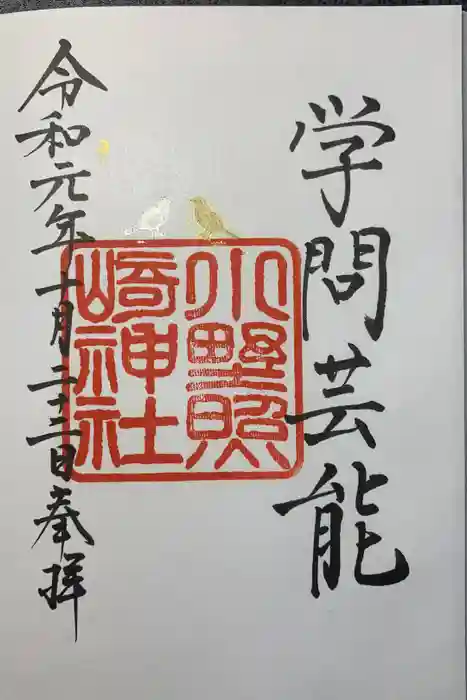 学問芸能
小野照
崎神社
令和元年十月二十三日奉拝